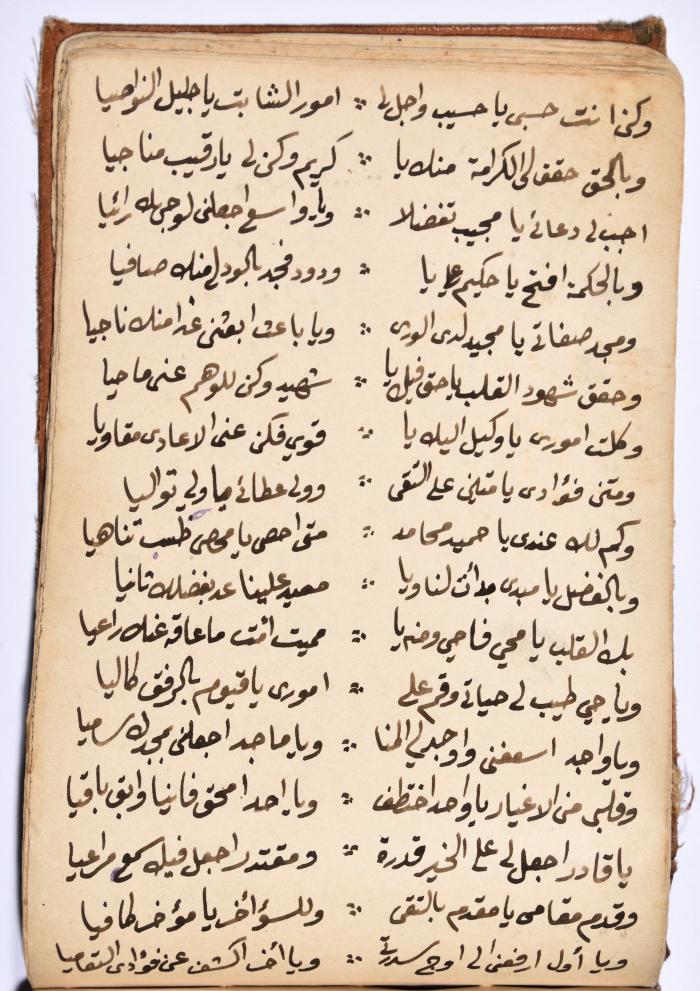 وكن انت حسبى يا حسيب واجل لى ∴ امور الشابت يا جليل النواصيا
وبالحق حقق لى الكرامة منك يا ∴ كريم وكن لى يا رقيب مناجيا
اجب لى دعائى يا مجيب تفضلا ∴ ويا واسع اجعلنى لوجهك رائيا
وبالحكمة افتح يا حكيم على يا ∴ ودود فجد بالجود لى منك صافيا
ومجد صفاتى يا مجيد لدى الورى ∴ ويا باعث ابعثنى غدا منك ناجيا
وحقق شهود القلب يا حق فيك يا ∴ شهيد وكن للوهم عنى ماحيا
وكلت امورى يا وكيل اليك يا ∴ قوي فكن عنى الاعادى مقاويا
ومتن فؤادى يا متين على التقى ∴ وولى عطائى يا ولي تواليا
وكم لك عندى يا حميد محامد ∴ متى احصى يا محصى تناهيا
وبالفضل يا مبدى بدأت لنا ويا ∴ معيد علينا عد بفضلك ثانيا
بك القلب يا محي فاحي ومنه يا ∴ مميت امت ما عاقه عنك راعيا
ويا حي طيب لى حياتى وقم على ∴ امورى يا قيوم بالرفق كاليا
ويا واجد اسعفنى واوجد لى المنا ∴ ويا ماجد اجعلنى بمجدك ساميا
وقلبى من الاغيار يا واحد اختطف ∴ ويا احد امحق فانيا وابق باقيا
يا قادر اجعل لى على الخير قدرة ∴ ومقتدر اجعل فيك سمع مراعيا
وقدم مقامى يا مقدم بالتقى ∴ وللسؤ أخر يا مؤخر كافيا
ويا أول ارفعنى الى اوج سدرتى ∴ ويا أخر اكشف عن فؤادى التعاميا